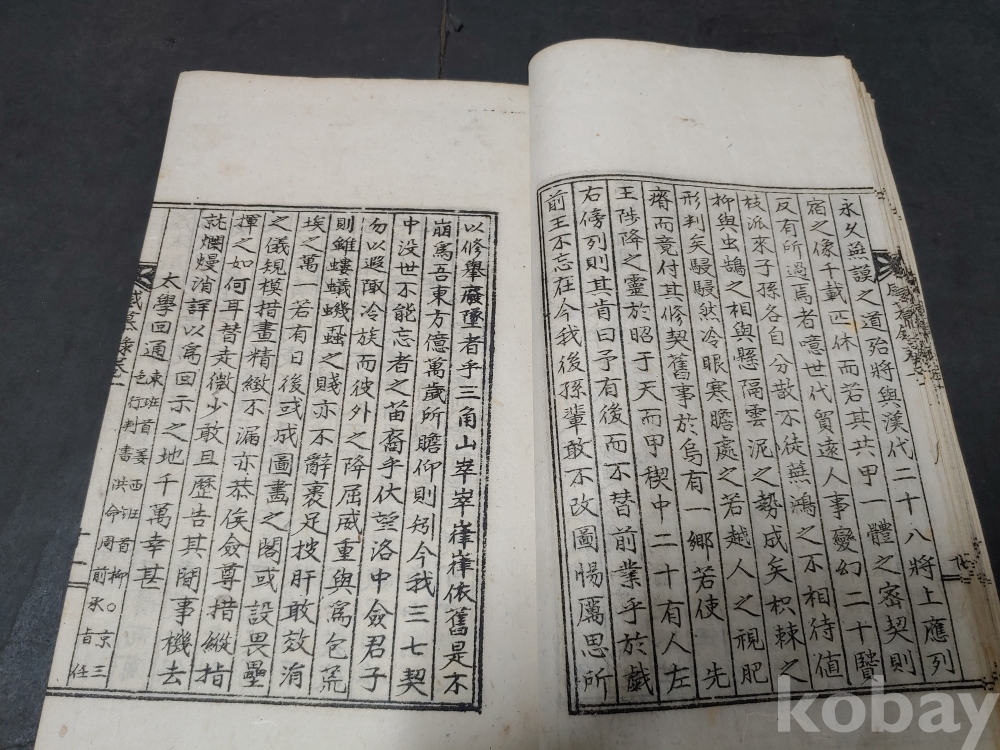 永久無諼之道殆將與漢代二十八將上應列
宿之像千載匹休而若其共甲一體之密契則
反有所過焉者意世代貿遠人事變幻二十賢
枝派來子孫各自分散不徒燕鴻之不相待值
柳與虫鵠之相與懸隔雲泥之勢成矣枳棘之
形判矣駸駸然冷眼寒瞻處之若越人之視肥
瘠而竟付其修契舊事於烏有一鄉若使 先
王陟降之靈於昭于天而甲稧中二十有人左
右傍列則其肯曰予有後而不替前業乎於戲
前王不忘在今我後孫輩敢不改圖惕厲思所
以修舉廢墜者乎三角山崒崒嶪嶪依舊是不
崩爲吾東方億萬歲所瞻仰則矧今我三七契
中沒世不能忘者之苗裔乎伏望洛中僉君子
勿以遐陬冷族而彼外之降屈威重與爲包荒
則雖螻蟻蟣蝨之賤亦不辭裹足披肝敢效涓
埃之萬一若有日後或成圖畵之閣或設畏壘
之儀規模措畫精緻不漏亦恭俟僉尊措縱指
揮之如何耳替走微少敢且歷告其間事機去
就爛熳消詳以爲回示之地千萬幸甚
太學回通 東班首姜 西班首柳○京三
色行判書洪命周 前承旨任
kobay